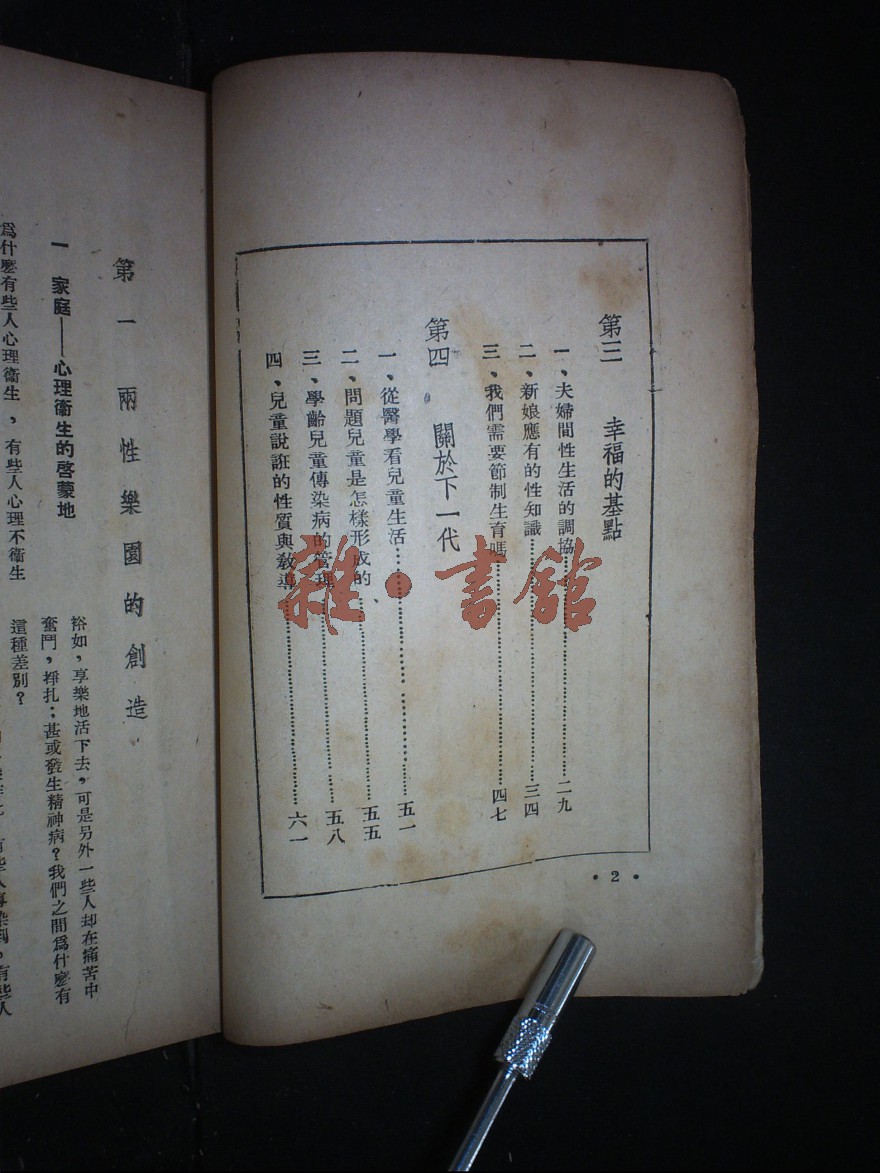 第三 幸福的基點
一、夫婦間性生活的調協……二九
二、新娘應有的性知識……三四
三、我們需要節制生育嗎……四七
第四 關於下一代
一、從醫學看兒童生活……五一
二、問題兒童是怎樣形成的……五五
三、學齡兒童傳染病的管理……五八
四、兒童說誑的性質與敎導……六一
• 2 •
雜·書館
第一 兩性樂園的創造
一 家庭——心理衞生的啓蒙地
爲什麽有些人心理衞生,有些人心理不衞生
裕如,享樂地活下去,可是另外一些人却在痛苦中
奮鬥,掙扎;甚或發生精神病?我們之間爲什麽有
這種差別?